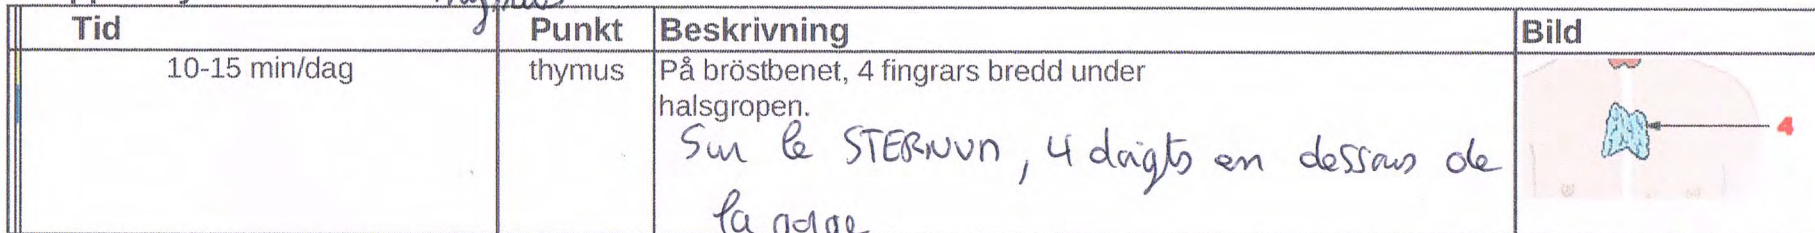 Tid Punkt Beskrivning Bild
10-15 min/dag thymus På bröstbenet, 4 fingrars bredd under
halsgropen.
Sur le STERNUM, 4 doigts en dessous de
la gorge
4